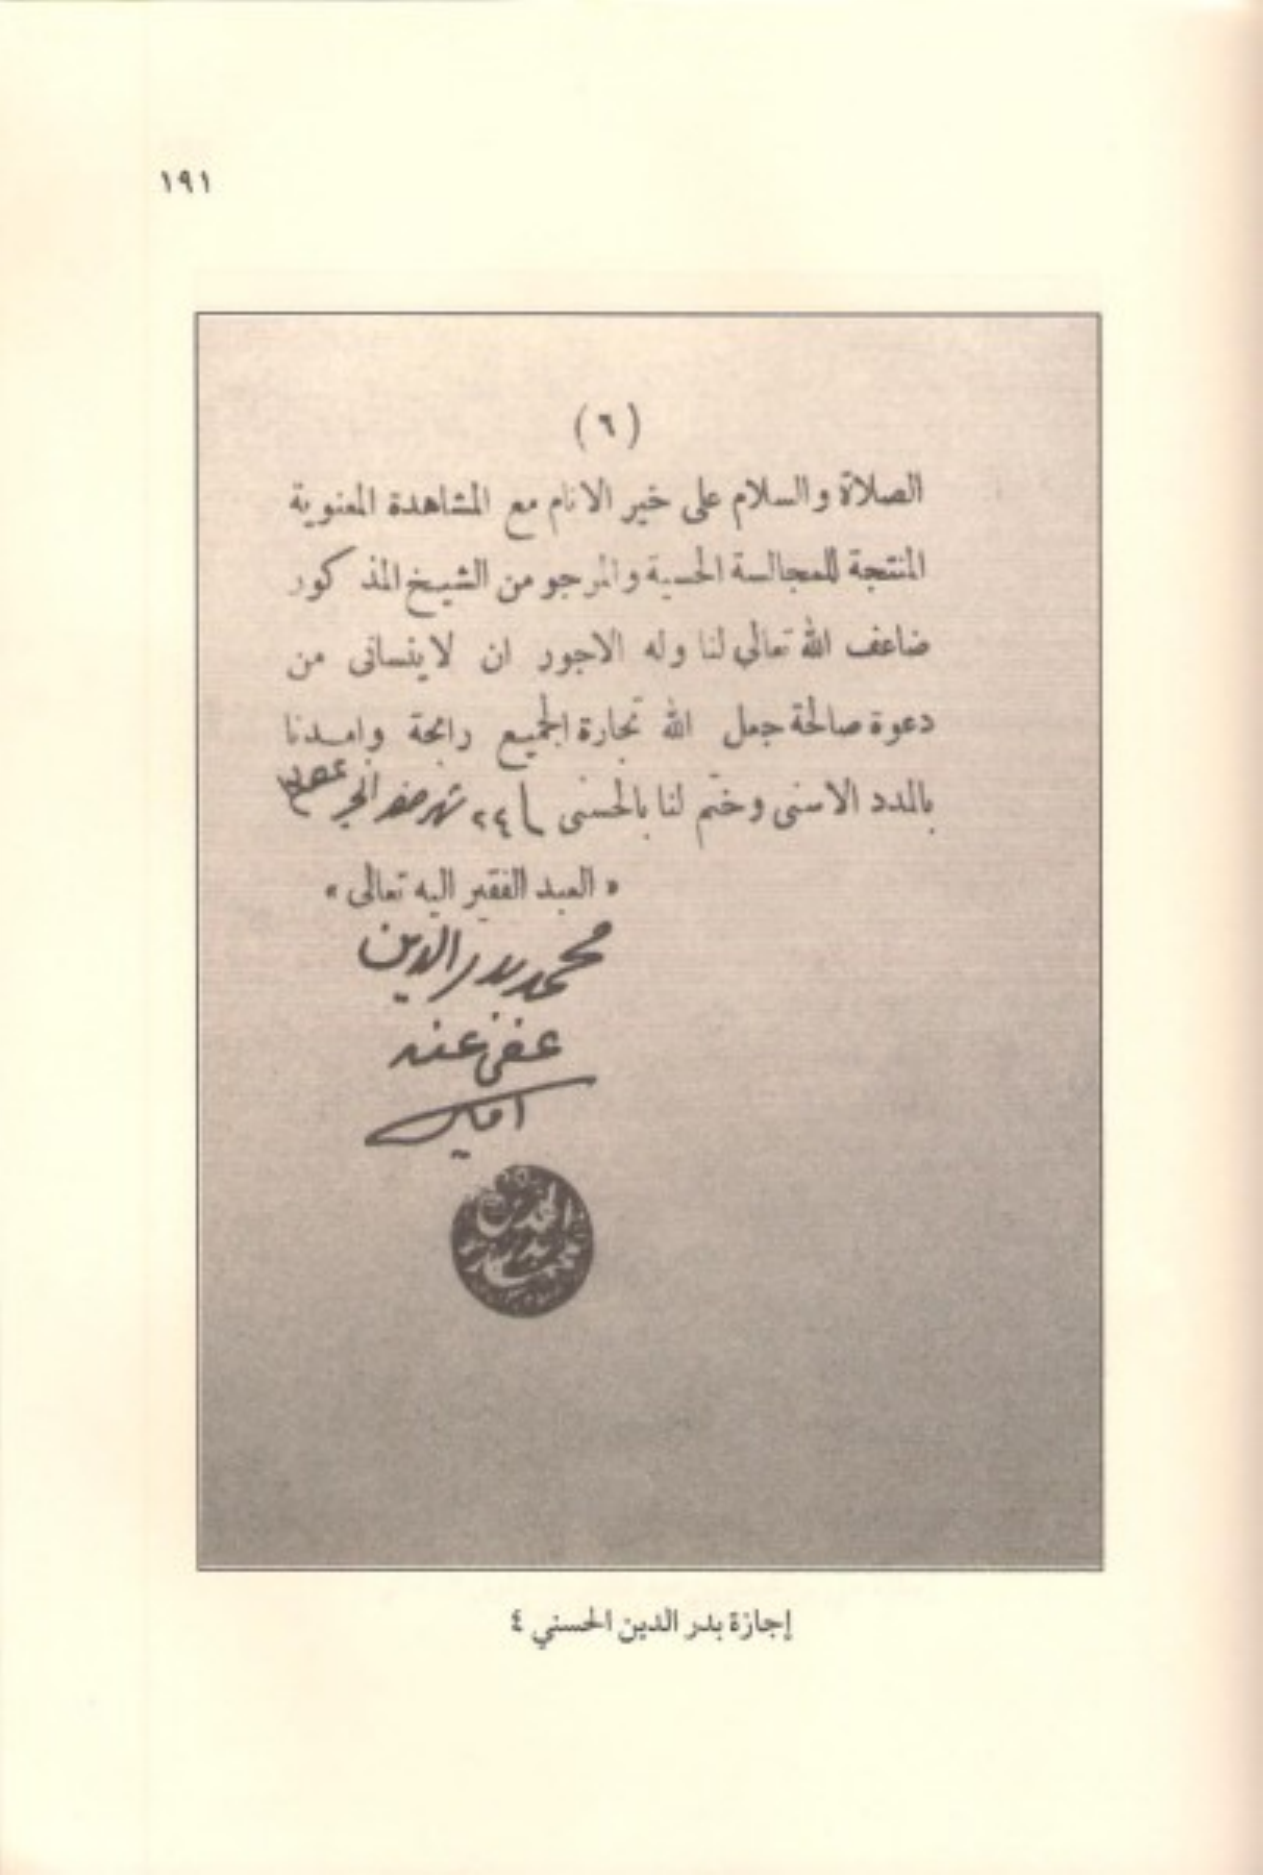 ١٩١
(٦)
الصلاة والسلام على خير الانام مع المشاهدة المعنوية
المنتجة للمجالسة الحسية والمرجو من الشيخ المذكور
ضاعف الله تعالى لنا وله الاجور ان لاينسانى من
دعوة صالحة جعل الله تجارة الجميع رابحة وامدنا
بالمدد الاسنى وختم لنا بالحسنى ٢٤ شهر صفر الخير
« العبد الفقير اليه تعالى »
محمد بدر الدين
عفي عنه
امين
إجازة بدر الدين الحسني ٤